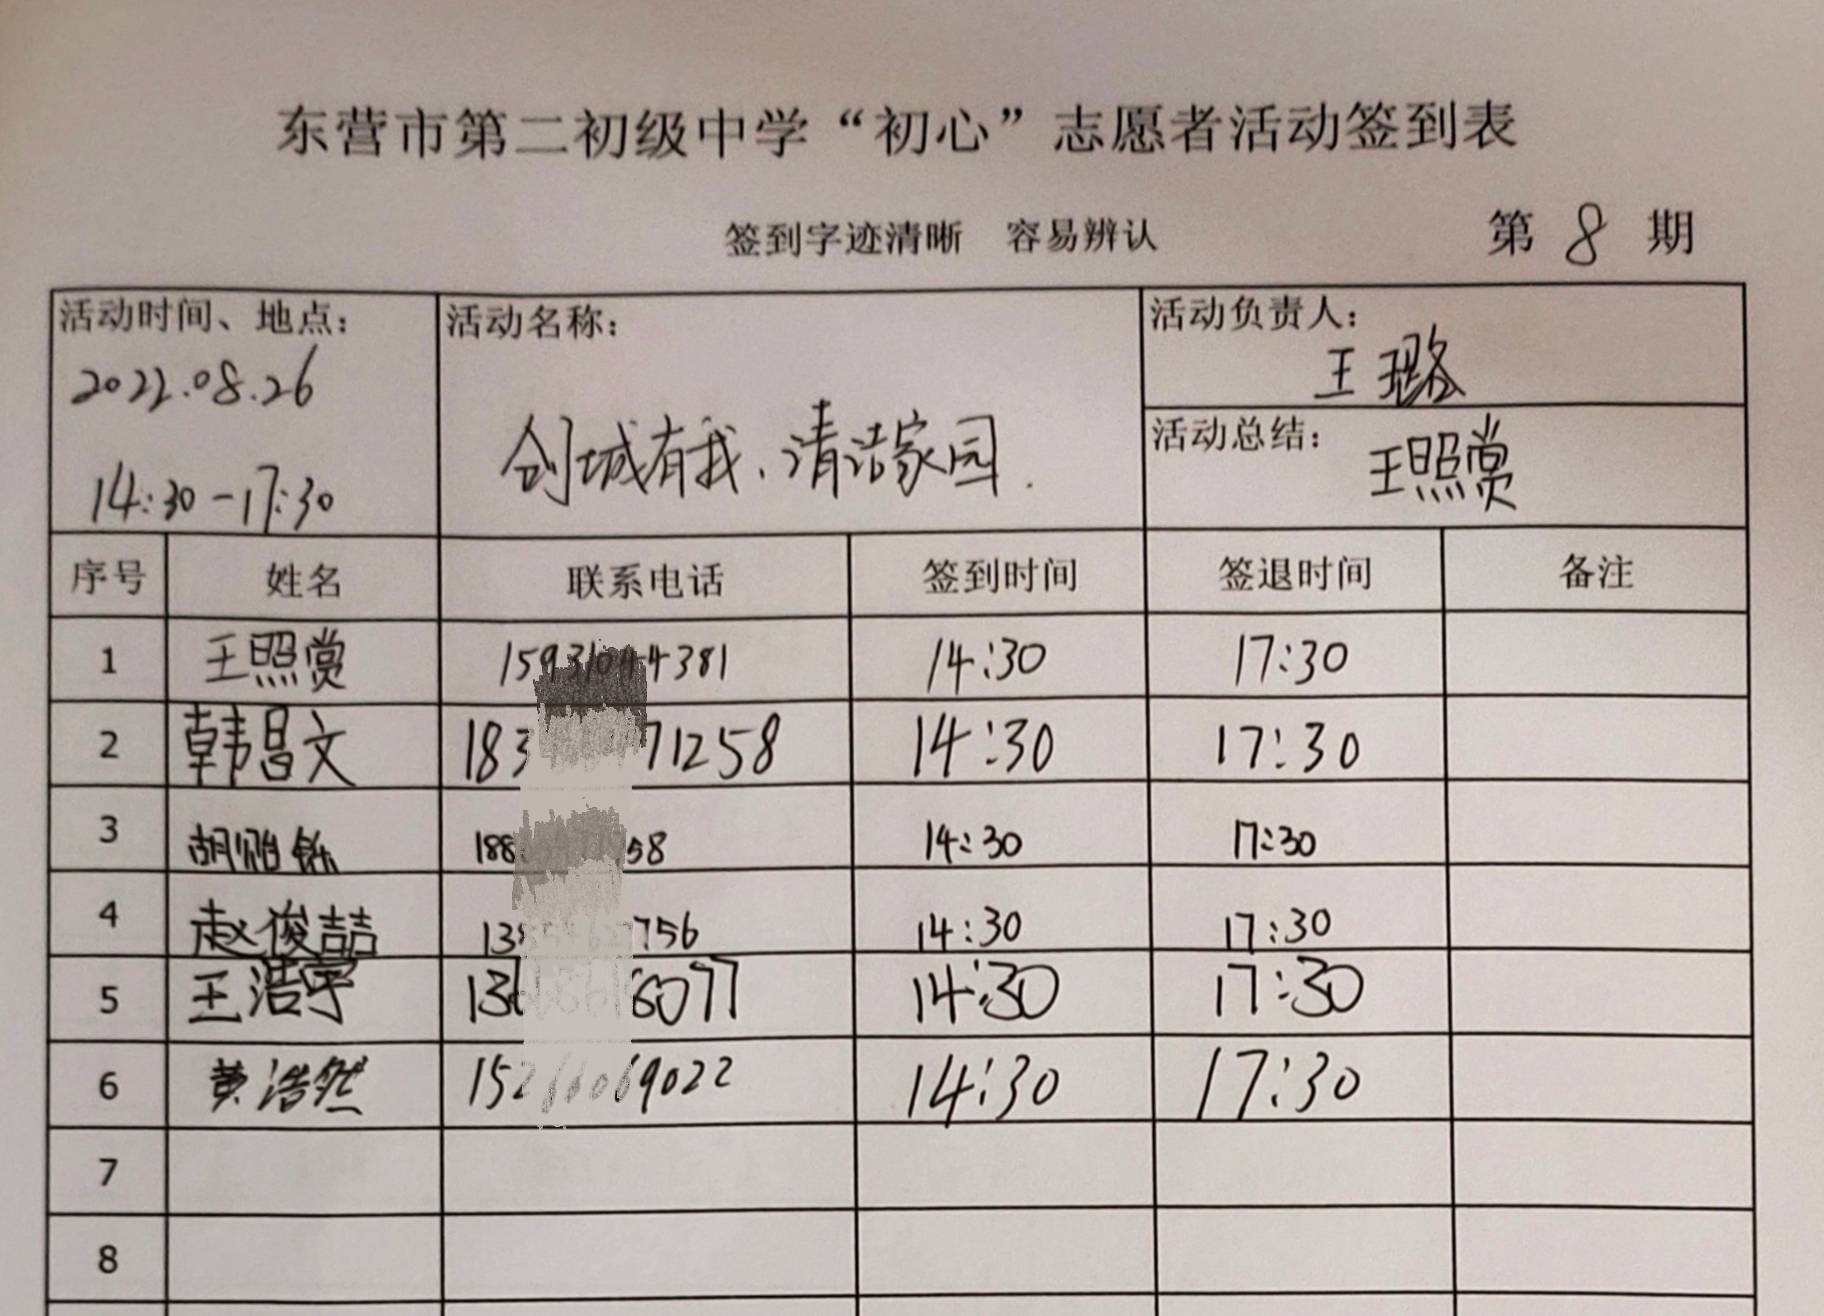 东营市第二初级中学“初心”志愿者活动签到表
签到字迹清晰 容易辨认 第 8 期
活动时间、地点： 活动名称： 活动负责人：
2022.08.26 王璐
14:30-17:30 创城有我、清洁家园. 活动总结： 王照赏
序号 姓名 联系电话 签到时间 签退时间 备注
1 王照赏 14:30 17:30
2 韩昌文 14:30 17:30
3 胡贻 14:30 17:30
4 赵俊喆 14:30 17:30
5 王浩宇 14:30 17:30
6 黄浩然 14:30 17:30
7
8